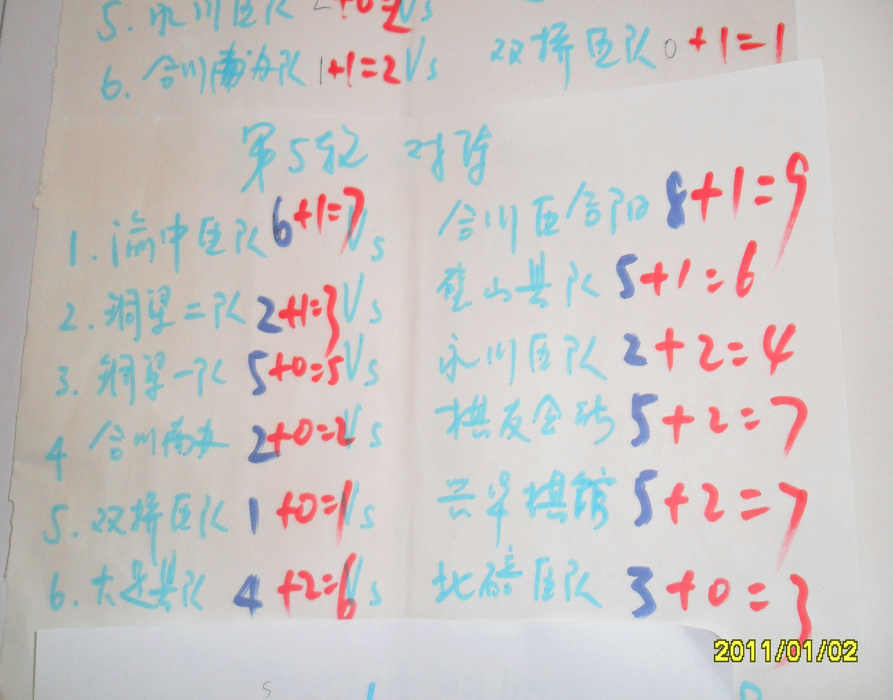 5. 永川区队 2+0=2 Vs
6. 合川南办队 1+1=2 Vs 双桥区队 0+1=1
第5轮 对阵
1. 渝中区队 6+1=7 Vs 合川区合阳 8+1=9
2. 铜梁二队 2+1=3 Vs 璧山县队 5+1=6
3. 铜梁一队 5+0=5 Vs 永川区队 2+2=4
4 合川南办 2+0=2 Vs 棋友会砖 5+2=7
5. 双桥区队 1+0=1 Vs 兴华棋馆 5+2=7
6. 大足县队 4+2=6 Vs 北碚区队 3+0=3
2011/01/02